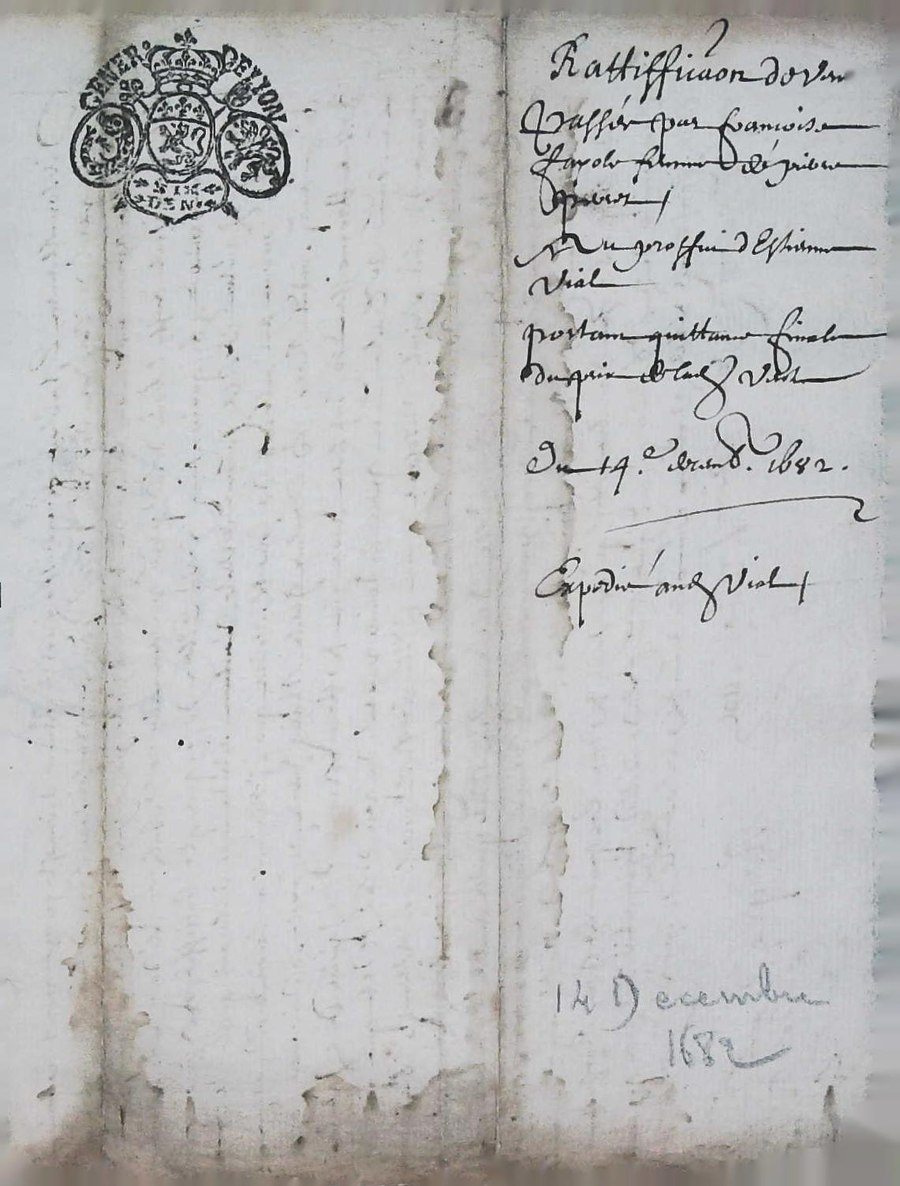 GENER. DE LYON
SIX
DEN.
Rattiffication de Ven
Passée par francoise
fayole femme de pierre
Au proffit d'Estienne
Vial
portant quittance finale
du prix de lad Vente
Du 14.e decemb. 1682.
Expedié aud Vial
14 Decembre
1682